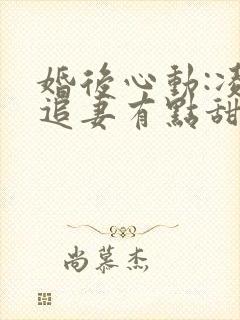 婚後心動:凌
追妻有點甜
尚慕杰